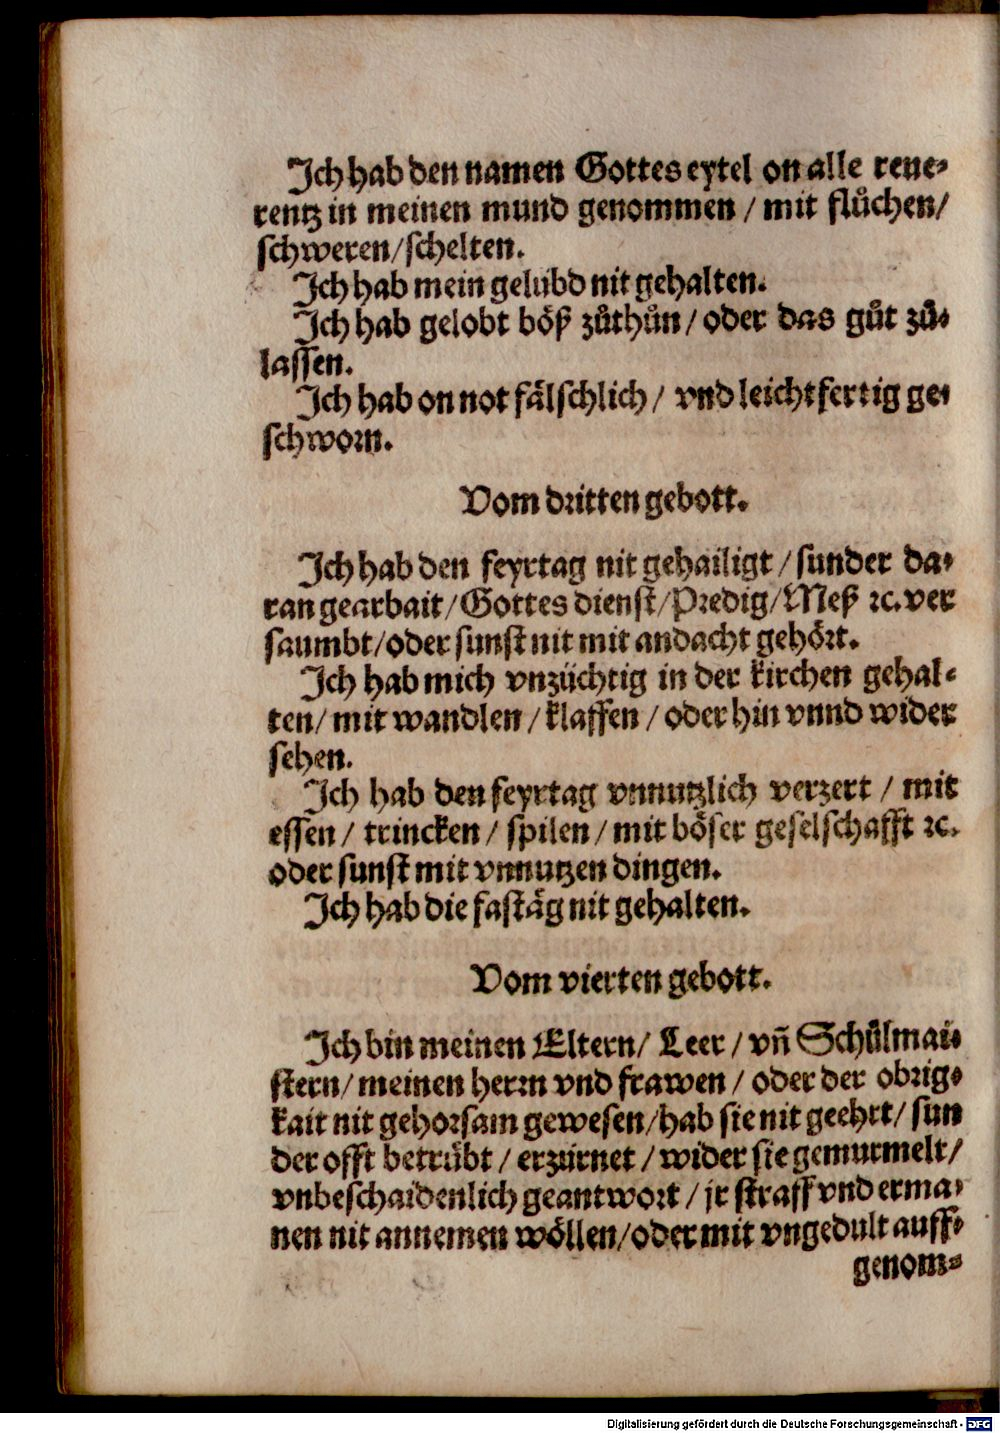 Ich hab den namen Gottes eytel on alle reue⸗
rentz in meinen mund genommen / mit flůchen/
schweren/schelten.
Ich hab mein gelübd nit gehalten.
Ich hab gelobt böß zůthůn / oder das gůt zů⸗
lassen.
Ich hab on not fälschlich / vnd leichtfertig ge⸗
schworn.
Vom dritten gebott.
Ich hab den feyrtag nit gehailigt / sunder da⸗
ran gearbait/Gottes dienst/Predig/Meß ꝛc. ver
saumbt/oder sunst nit mit andacht gehört.
Ich hab mich vnzüchtig in der kirchen gehal⸗
ten/ mit wandlen / klaffen / oder hin vnnd wider
sehen.
Ich hab den feyrtag vnnutzlich verzert / mit
essen / trincken / spilen / mit böser geselschafft ꝛc.
oder sunst mit vnnutzen dingen.
Ich hab die fastäg nit gehalten.
Vom vierten gebott.
Ich bin meinen Eltern/ Leer / vñ Schůlmai⸗
stern/ meinen herrn vnd frawen / oder der obrig⸗
kait nit gehorsam gewesen/hab sie nit geehrt/ sun
der offt betrübt / erzürnet / wider sie gemurmelt/
vnbeschaidenlich geantwort / jr straff vnd erma⸗
nen nit annemen wöllen/oder mit vngedult auff⸗
genom⸗
Digitalisierung gefördert durch die Deutsche Forschungsgemeinschaft - DFG